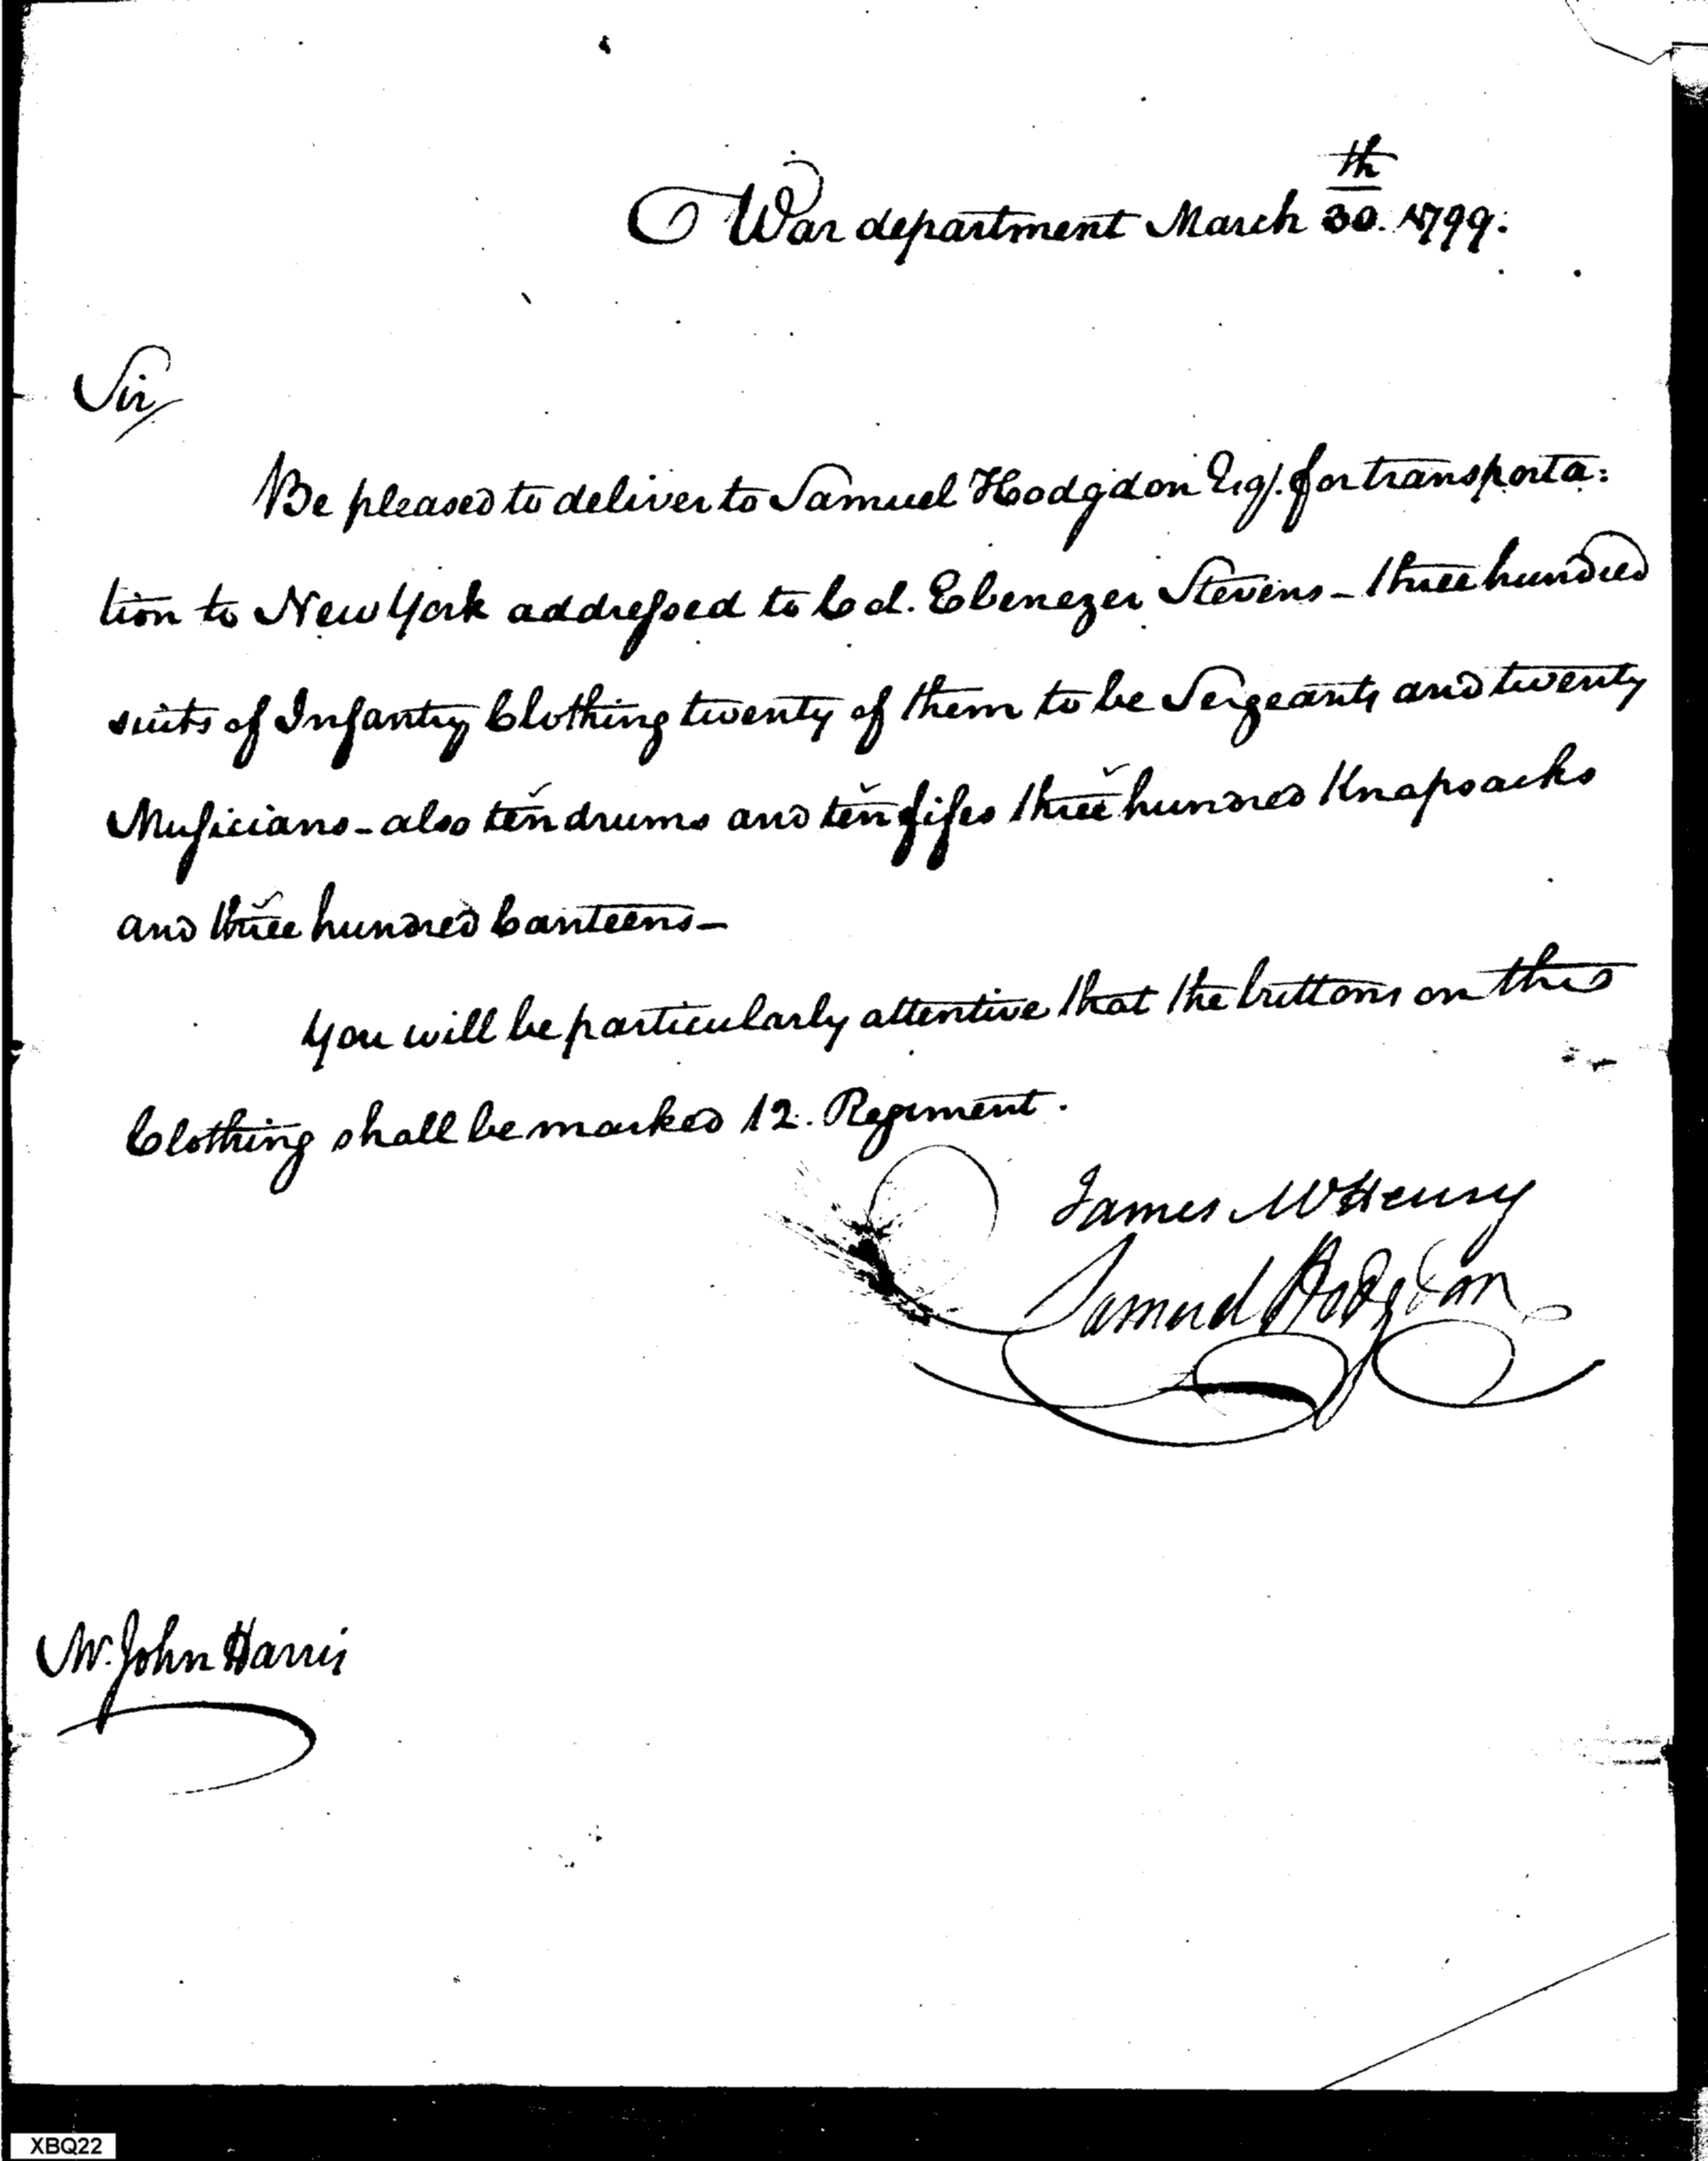 War department March 30.th 1799.
Sir
Be pleased to deliver to Samuel Hodgdon Esq. for transporta:
tion to New York addressed to Col. Ebenezer Stevens - three hundred
suits of Infantry Clothing twenty of them to be Sergeants and twenty
Musicians - also ten drums and ten fifes three hundred Knapsacks
and three hundred Canteens -
You will be particularly attentive that the buttons on this
Clothing shall be marked 12. Regiment.
James McHenry
Samuel Hodgdon
Mr. John Harris
XBQ22